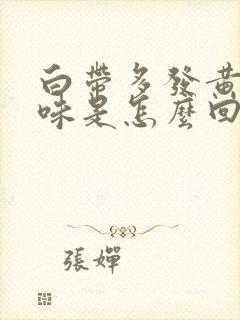 白帶多發黃
味是怎麼回
張嬋